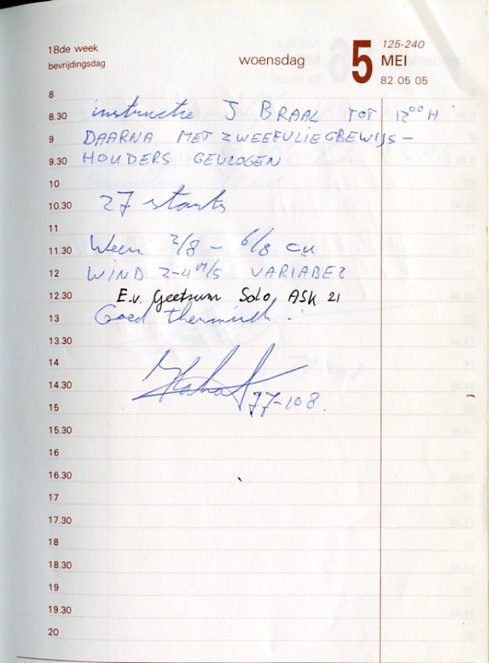 18de week
bevrijdingsdag
woensdag
5
125-240
MEI
82 05 05
8
8.30 instructie J BRAAL TOT 12⁰⁰ H
9 DAARNA MET ZWEEFVLIEGBEWIJS-
9.30 HOUDERS GEVLOGEN
10
10.30 27 starts
11
11.30 Weer 2/8 - 6/8 cu
12 WIND 2-4 M/S VARIABEL
12.30 E.v. Geetsum Solo ASK 21
13 Goed thermiek!
13.30
14
14.30
77-108.
15
15.30
16
16.30
17
17.30
18
18.30
19
19.30
20